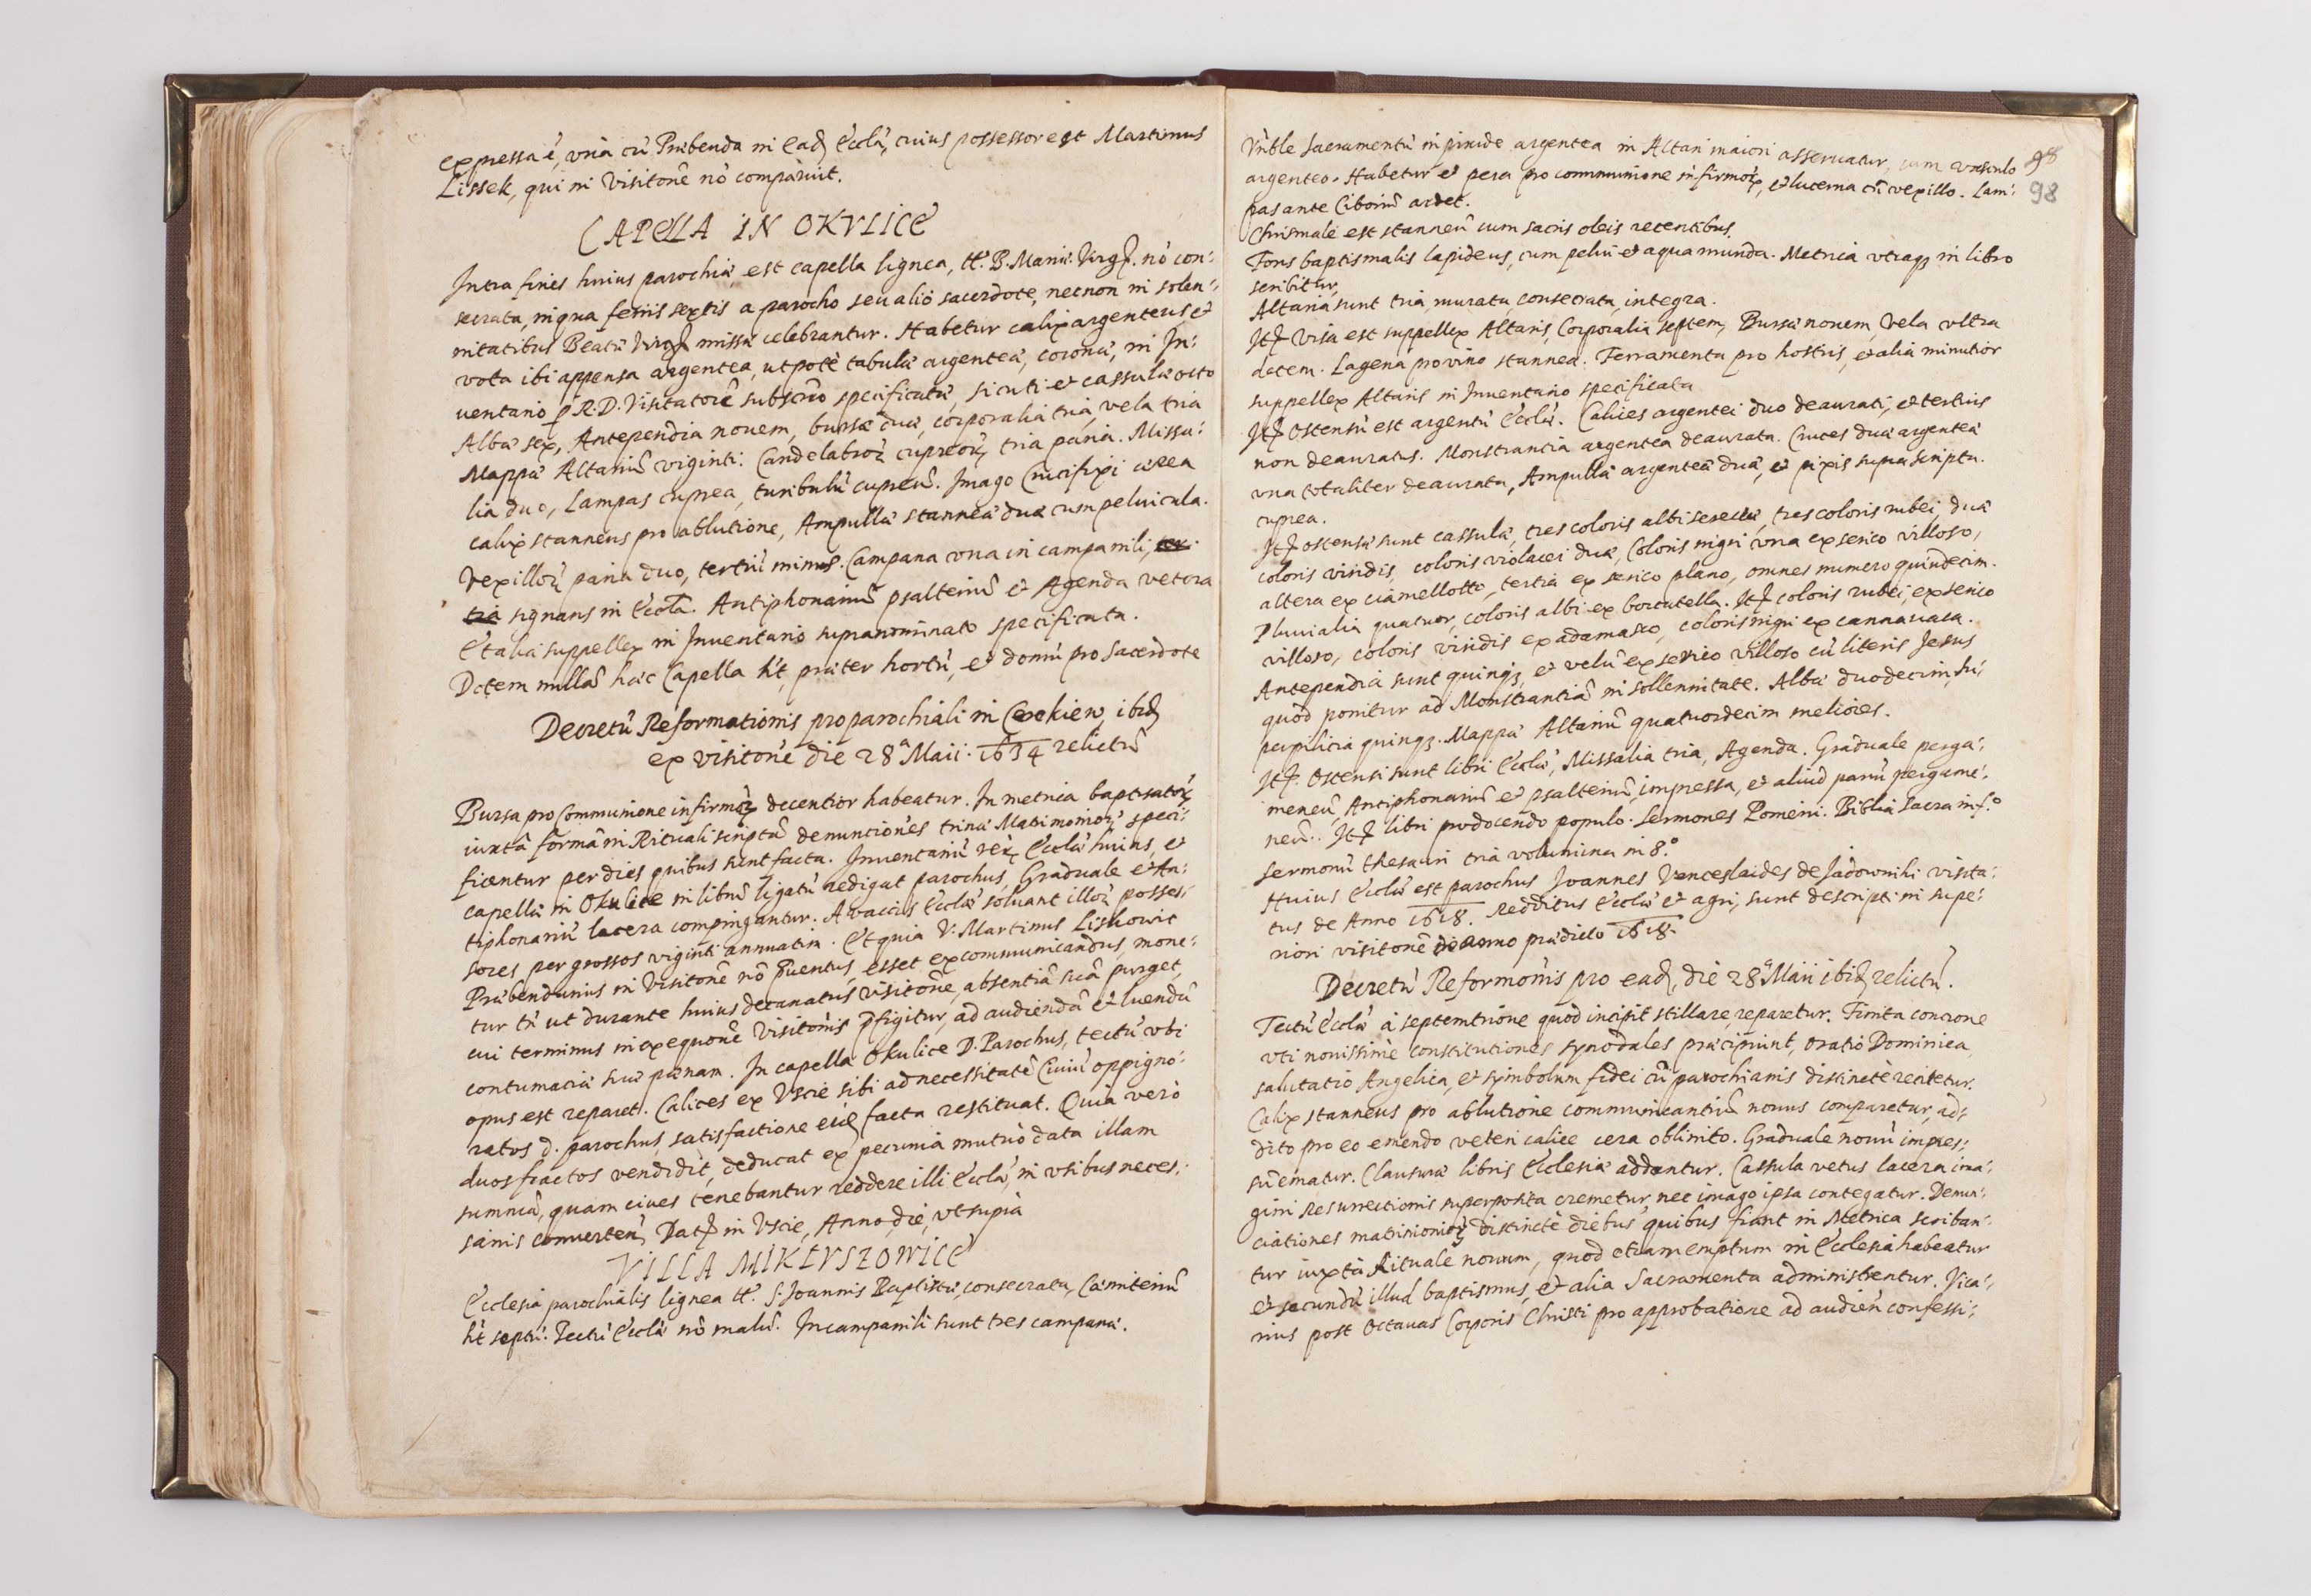 expressa ẽ, vnà cũ Præbenda in Ead. Eccłâ, cuius possessor est Martinus
Lissek, qui in Visitone nõ comparuit.
CAPELLA IN OKVLICE
Intra fines huius parochiæ est capella lignea, tt. B. Mariæ Virg. nõ con:
secrata, in qua ferijs sextis a parocho seu alio sacerdote, necnon in solen:
nitatibus Beatæ Virg. missæ celebrantur. Habetur calix argenteus, et
vota ibi appensa argentea, utpotè tabulæ argenteæ, coronæ, in In:
uentario p R. D. Visitatorẽ subscrito specificatæ, sicuti et cassulæ octo
Albæ sex, Antependia nouem, bursæ duæ, corporalia tria, vela tria
Mappæ Altariũ viginti. Candelabroꝝ cupreoꝝ tria paria. Missa:
lia duo, Lampas cuprea, turibulũ cupreũ. Imago Crucifixi ærea
calix stanneus pro ablutione, Ampullæ stanneæ duæ cum peluicula.
Vexilloꝝ paria duo, tertiũ minus. Campana vna in campanili,
tria signans in Eccła. Antiphonariũ psalteriũ et Agenda vetera
Et alia suppellex in Inuentario supranominato specificata.
Dotem nullã hæc Capella h̃t, præter hortũ, et domũ pro Sacerdote
Decretũ Reformationis pro parochiali in Cerekiew, ibid.
ex visitone die 28ª Maii. 1634 relictũ
Bursa pro Communione infirmoꝝ decentior habeatur. In metrica baptisatoꝝ
iuxtà formã in Rituali scriptã denunciones trinæ Matrimonioꝝ speci:
ficentur per dies quibus sunt factæ. Inuentariũ reꝝ Eccłæ huius, et
capellæ in Okulice in librũ ligatũ redigat parochus, Graduale et An:
tiphonariũ lacera compingantur. A vaccis Eccłæ soluant illoꝝ posses:
sores per grossos viginti annuatim. Et quia V. Martinus Liskowic
Præbendarius in Visitone nõ p̃uentus, esset excommunicandus, mone:
tur tñ ut durante huius decanatus visitone, absentiã suã purget,
cui terminus in exequone Visitonis p̃figitur, ad audiendã et luendã
contumaciæ suæ pœnam. In capella Okulice D. Parochus, tectũ vbi
opus est reparet. Calices ex Vscie sibi ad necessitatẽ Ciuiũ oppigno:
ratos D. parochus, satisfactione eid. facta restituat. Quia verò
duos fractos vendidit, deducat ex pecunia mutuò data illam
summã, quam ciues tenebantur reddere illi Eccłæ, in vsibus neces:
sarijs conuerteñ. Dat. in Vscie, Anno, die, vt suprà
VILLA MIKLVSZOWICE
Ecclesia parochialis lignea tt. S. Joannis Baptistæ, consecrata, Cæmiteriũ
h̃t septũ. Tectũ Eccłæ nõ malũ. In campanili sunt tres campanæ.
98
98
Vn̄ble Sacramentũ in pixide argentea in Altari maiori asseruatur, cum vasculo
argenteo. Habetur et pera pro communione infirmoꝝ, et lucerna cũ vexillo. Lam:
pas ante Ciboriũ ardet.
Chrismale est stanneũ cum sacris oleis recentibus.
Fons baptismalis lapideus, cum pelui et aqua munda. Metrica vtraqꝫ in libro
scribitur.
Altaria sunt tria, murata, consecrata, integra.
It. Visa est suppellex Altaris, Corporalia septem, Bursæ nouem, Vela vltra
decem. Lagena pro vino stannea. Ferramenta pro hostijs, et alia minutior
suppellex Altaris in Inuentario specificata
It. Ostensũ est argentũ Eccłæ. Calices argentei duo deaurati, et tertius
non deauratus. Monstrantia argentea deaurata. Cruces duæ argenteæ
vna totaliter deaurata, Ampullæ argenteæ duæ, et pixis supra scripta.
cuprea.
It. ostensæ sunt cassulæ, tres coloris albi sericeæ, tres coloris rubei, duæ
coloris viridis, coloris violacei duæ, Coloris nigri vna ex serico villoso,
altera ex ciamellotto, tertia ex serico plano, omnes numero quindecim.
Pluuialia quatuor, coloris albi ex borcatella. It. coloris rubei, ex serico
villoso, coloris viridis ex adamasco, coloris nigri ex cannauata.
Antependia sunt quinqꝫ, et velũ ex serico villoso cũ literis Jesus
quod ponitur ad Monstrantiã in sollennitate. Albæ duodecim, su:
perpilicia quinqꝫ. Mappæ Altariũ quatuordecim meliores.
It. Ostensi sunt libri Eccłæ, Missalia tria, Agenda. Graduale perga:
meneũ, Antiphonariũ et psalteriũ, impressa, et aliud paruũ pergame:
neũ. It. libri pro docendo populo. Sermones Pomerij. Biblia Sacra in f.º
Sermonũ thesauri tria volumina in 8.º
Huius Eccłæ est parochus Joannes Venceslaides de Jadowniki visita:
tus de Anno 1618. Redditus Eccłæ et agri, sunt descripti in supe:
riori visitone de Anno prædicto 1618.
Decretũ Reformonis pro ead. die 28ª Maii ibid. relictũ.
Tectũ Eccłæ à septemtrione quod incipit stillare, reparetur. Finita concione
vti nouissimè constitutiones synodales præcipiunt, oratio Dominica
salutatio Angelica, et symbolum fidei cũ parochianis distinctè recitetur.
Calix stanneus pro ablutione communicantiũ nouus comparetur, ad:
dito pro eo emendo veteri calice cera oblinito. Graduale nouũ impres:
sũ ematur. Clausuræ libris Ecclesiæ addantur. Cassula vetus lacera ima:
gini Resurrectionis superposita cremetur, nec imago ipsa contegatur. Denun:
ciationes matrimonioꝝ distinctè diebus quibus fiunt in Metrica scriban:
tur iuxtà Rituale nouum, quod etiam emptum in Ecclesia habeatur
et secundũ illud baptismus, et alia Sacramenta administrentur. Vica:
rius post Octauas Corporis Christi pro approbatione ad audień confessi: